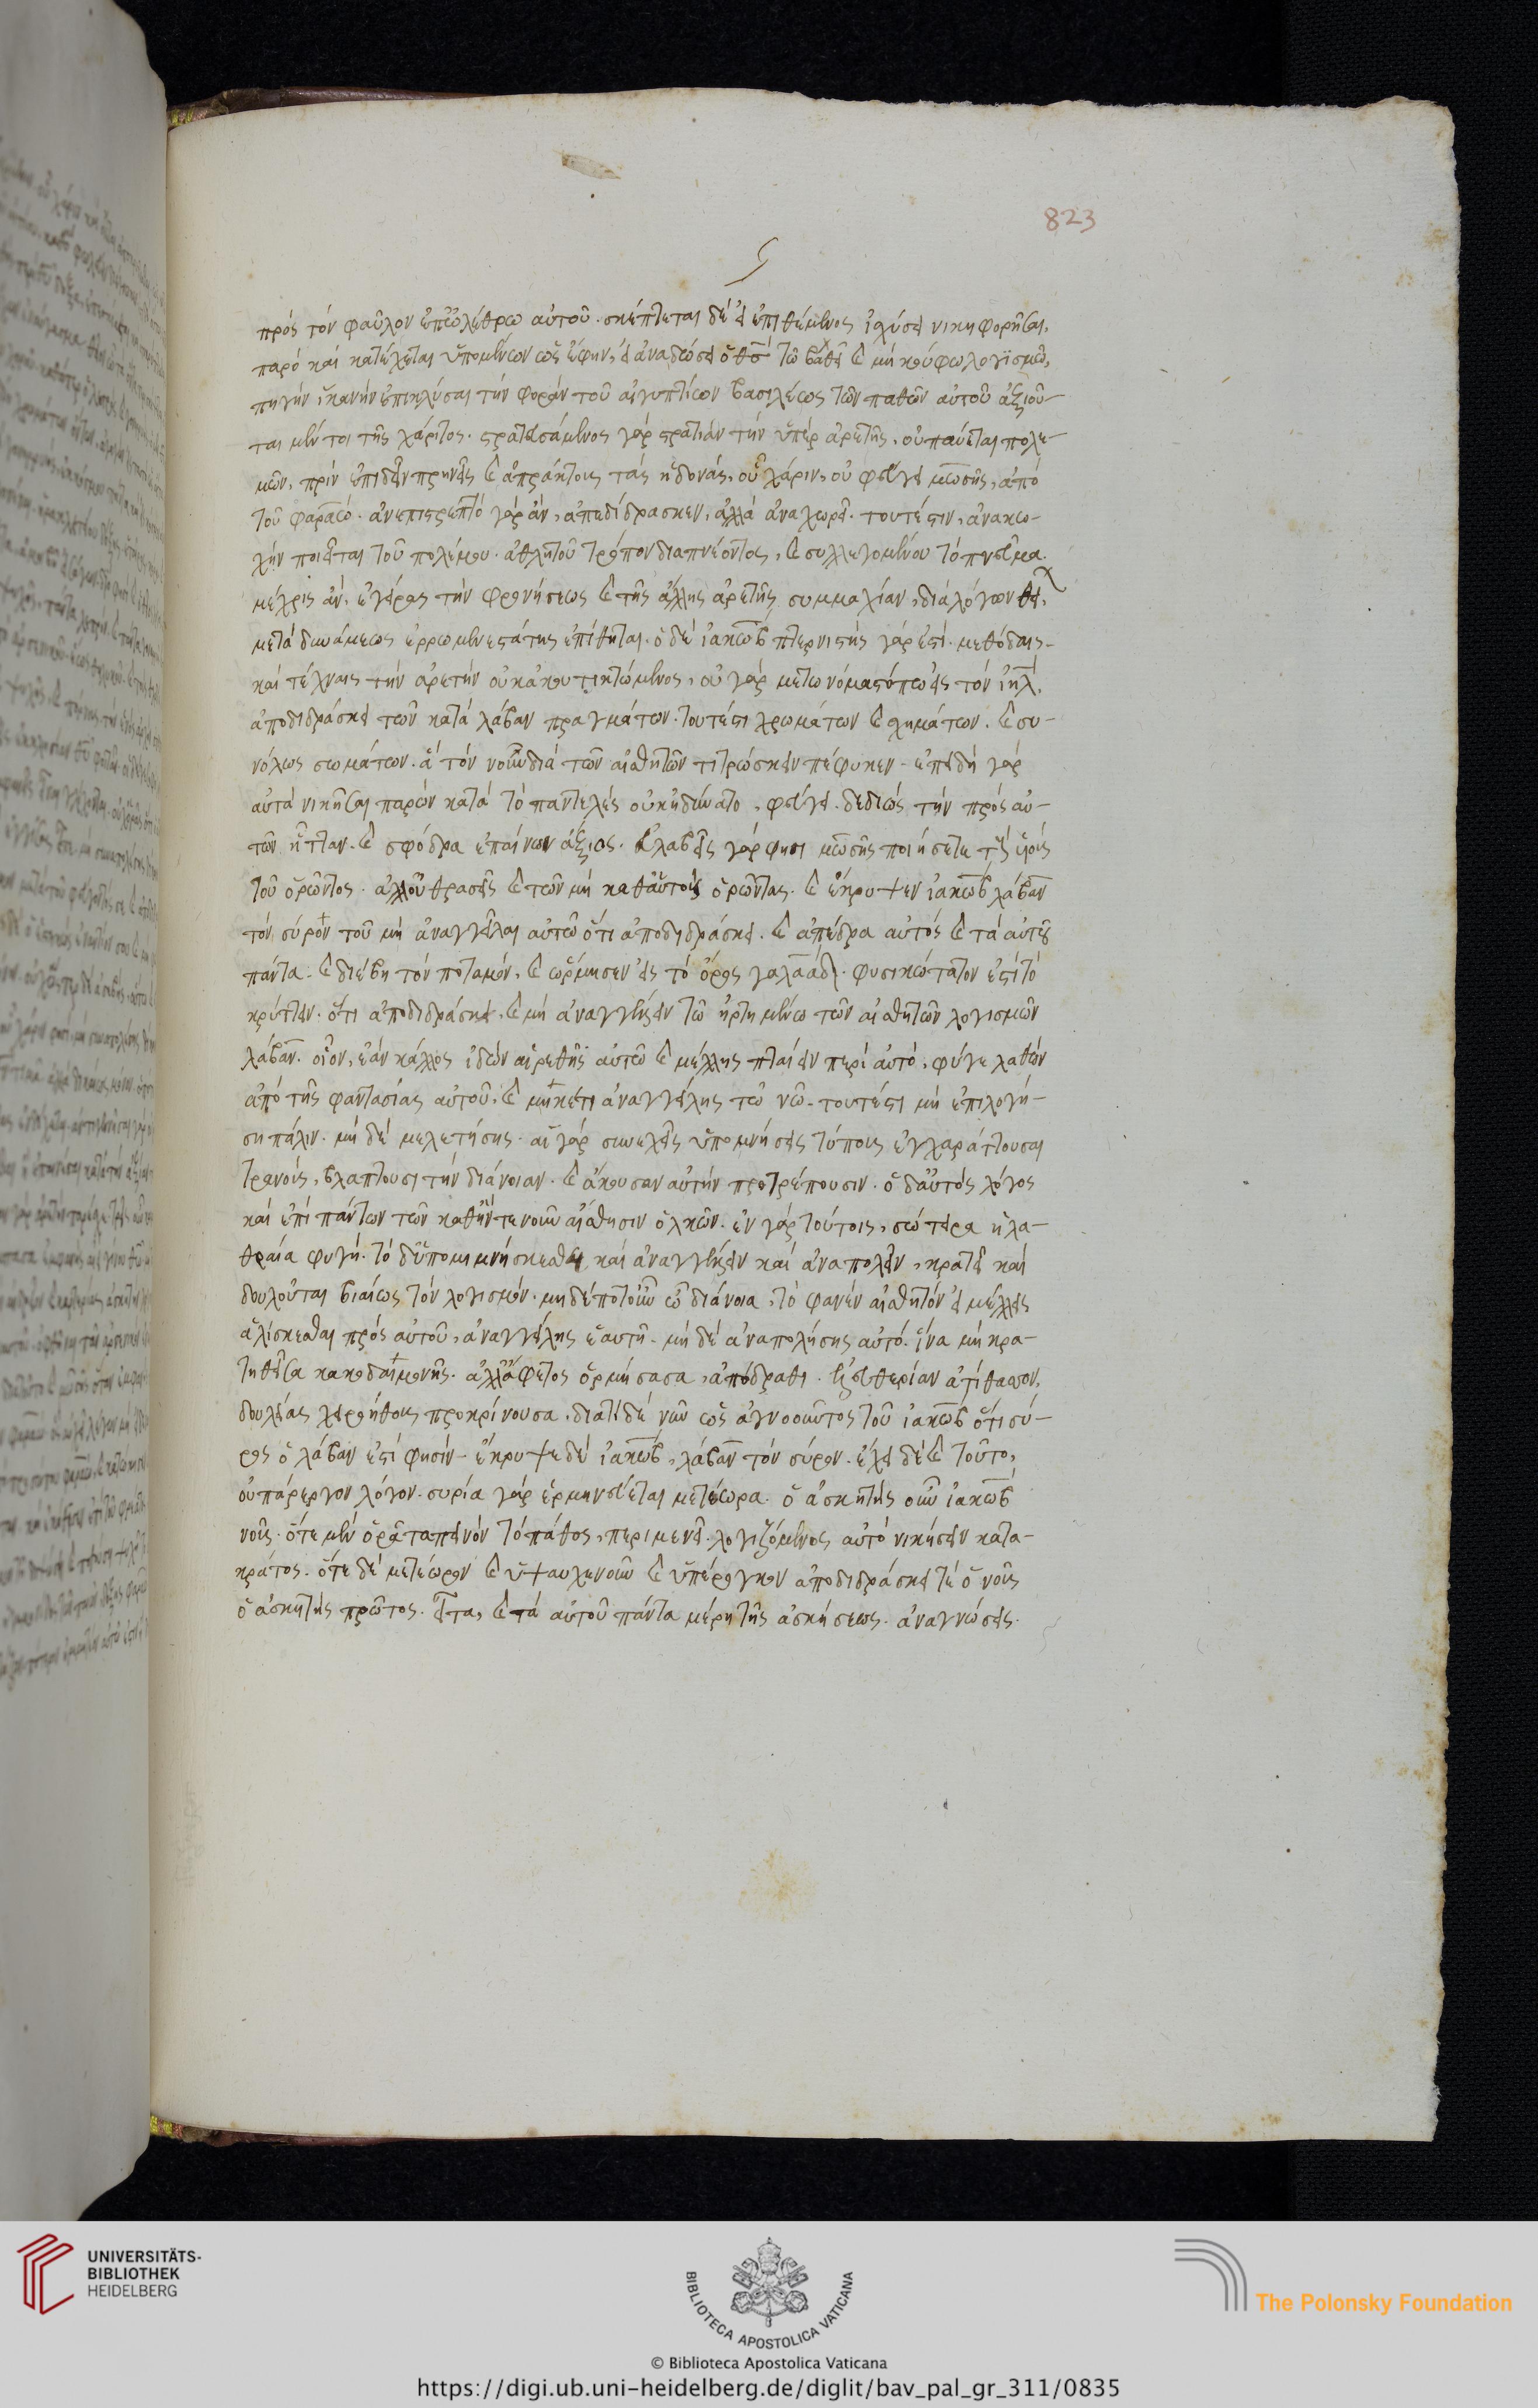 823
ς
πρὸς τὸν φαῦλον ἐπ' ὀλέθρω αὐτοῦ. σκέπτεται δὲ εἰ ἐπιθέμενος ἰσχύσει νικηφορῆσαι.
παρὸ καὶ κατέχεται ὑπομένων ὡς ἔφην, εἰ ἀναδώσει ὁ θσ τῶ βαθεῖ καὶ μὴ κούφω λογϊσμῶ,
πηγὴν ἱκανὴν ἐπικλύσαι τὴν φορὰν τοῦ αἰγυπτίων βασιλέως τῶν παθῶν αὐτοῦ ἀξιοῦ-
ται μέν τοι τῆς χάριτος. στρατευσάμενος γὰρ στρατιὰν τὴν ὑπὲρ ἀρετῆς, οὐ παύεται πολε-
μῶν, πρὶν ἐπιδεῖν πρηνεῖς καὶ ἀπράκτους τὰς ἡδονάς, οὗ χάριν, οὐ φεύγει μωσῆς, ἀπὸ
τοῦ φαραώ. ἀνεπιστρεπτὸ γὰρ ἂν, ἀπεδίδρασκεν, ἀλλὰ ἀναχωρεῖ. τουτέστιν, ἀνακω-
χὴν ποιεῖται τοῦ πολέμου. ἀθλητοῦ τρόπον διαπνέοντος, καὶ συλλεγομένου τὸ πνεῦμα.
μέχρις ἂν, ἐγείρας τὴν φρονήσεως καὶ τῆς ἄλλης ἀρετῆς συμμαχίαν, διὰ λόγων θεί,
μετὰ δυνάμεως ἐρρωμενεστάτης ἐπίθηται. ὁ δὲ ἰακὼβ πτερνιστὴς γάρ ἐστι. μεθόδοις-
καὶ τέχναις τὴν ἀρετὴν οὐκ ἀκονιτὶ κτώμενος, οὐ γὰρ μετωνόμαστό πω εἰς τὸν ἰηλ,
ἀποδιδράσκει τῶν κατὰ λάβαν πραγμάτων. τουτέστι χρωμάτων καὶ σχημάτων. καὶ συ-
νόλως σωμάτων. ἃ τὸν νοῦν διὰ τῶν αἰσθητῶν τιτρώσκειν πέφυκεν. ἐπειδὴ γὰρ
αὐτὰ νικῆσαι παρὼν κατὰ τὸ παντελὲς οὐκ ἠδύνατο, φεύγει. δεδιὼς τὴν πρὸς αὐ-
τῶν ἧτταν. καὶ σφόδρα ἐπαίνων ἄξιος. εὐλαβεῖς γάρ φησι μωσῆς ποιήσετε τοὺς υἱοὺς
τοῦ ὁρῶντος. ἀλλ' οὐ θρασεῖς καὶ τῶν μὴ καθ' αὑτοὺς ὁρῶντας. καὶ ἔκρυψεν ἰακὼβ λάβαν
τὸν σύρον τοῦ μὴ ἀναγγεῖλαι αὐτῶ ὅτι ἀποδιδράσκει. καὶ ἀπέδρα αὐτὸς καὶ τὰ αὐτοῦ
πάντα. καὶ διέβη τὸν ποταμόν, καὶ ὥρμησεν εἰς τὸ ὄρος γαλαάδ. φυσικώτατον ἐστὶ τὸ
κρύπτειν. ὅτι ἀποδιδράσκει, καὶ μὴ ἀναγγέλλειν τῶ ἠρτημένω τῶν αἰσθητῶν λογισμῶν
λάβαν. οἷον, ἐὰν κάλλος ἰδὼν αἱρεθῇς αὐτῶ καὶ μέλλῃς πταίειν περὶ αὐτό, φύγε λαθὼν
ἀπὸ τῆς φαντασίας αὐτοῦ, καὶ μηκέτι ἀναγγείλῃς τῶ νῶ. τουτέστι μὴ ἐπιλογή-
σῃ πάλιν. μὴ δὲ μελετήσῃς. αἱ γὰρ συνεχεῖς ὑπομνήσεις τύπους ἐγχαράττουσαι
τρανούς, βλάπτουσι τὴν διάνοιαν. καὶ ἄκουσαν αὐτὴν προτρέπουσιν. ὁ δ' αὐτὸς λόγος
καὶ ἐπὶ πάντων τῶν καθ' ἥν τε νοῦν αἴσθησιν ὁλκῶν. ἐν γὰρ τούτοις, σώτειρα ἡ λα-
θραία φυγή. τὸ δ' ὑπομιμνήσκεσθαι, καὶ ἀναγγέλλειν καὶ ἀναπολεῖν, κρατεῖ καὶ
δουλοῦται βιαίως τὸν λογισμόν. μηδέποτ' οὖν ὦ διάνοια, τὸ φανὲν αἰσθητὸν εἰ μέλλεις
ἁλίσκεσθαι πρὸς αὐτοῦ, ἀναγγείλῃς ἑαυτῆ. μὴ δὲ ἀναπολήσῃς αὐτό. ἵνα μὴ κρα-
τηθεῖσα κακοδαιμονῇς. ἀλλ' ἄφετος ὁρμήσασα, ἀπόδραθι. ἐλευθερίαν ἀτίθασον,
δουλείας χειροήθους προκρίνουσα. διατί δὲ νῦν ὡς ἀγνοοῦντος τοῦ ἰακὼβ ὅτι σύ-
ρος ὁ λάβαν ἐστί φησίν. ἔκρυψε δὲ ἰακὼβ, λάβαν τὸν σύρον. ἔχει δὲ καὶ τοῦτο,
οὐ πάρεργον λόγον. συρία γὰρ ἑρμηνεύεται μετέωρα. ὁ ἀσκητὴς οὖν ἰακὼβ
νοῦς. ὅτε μὲν ὁρᾶ ταπεινὸν τὸ πάθος, περιμενεῖ. λογιζόμενος αὐτὸ νικήσειν κατα-
κράτος. ὅτε δὲ μετέωρον καὶ ὑψαυχενοῦν καὶ ὑπέρογκον ἀποδιδράσκει τέ ὁ νοῦς
ὁ ἀσκητὴς πρῶτος. εἶτα, καὶ τὰ αὐτοῦ πάντα μέρη τῆς ἀσκήσεως. ἀναγνώσεις.
UNIVERSITÄTS-
BIBLIOTHEK
HEIDELBERG
BIBLIOTECA APOSTOLICA VATICANA
The Polonsky Foundation
© Biblioteca Apostolica Vaticana
https://digi.ub.uni-heidelberg.de/diglit/bav_pal_gr_311/0835